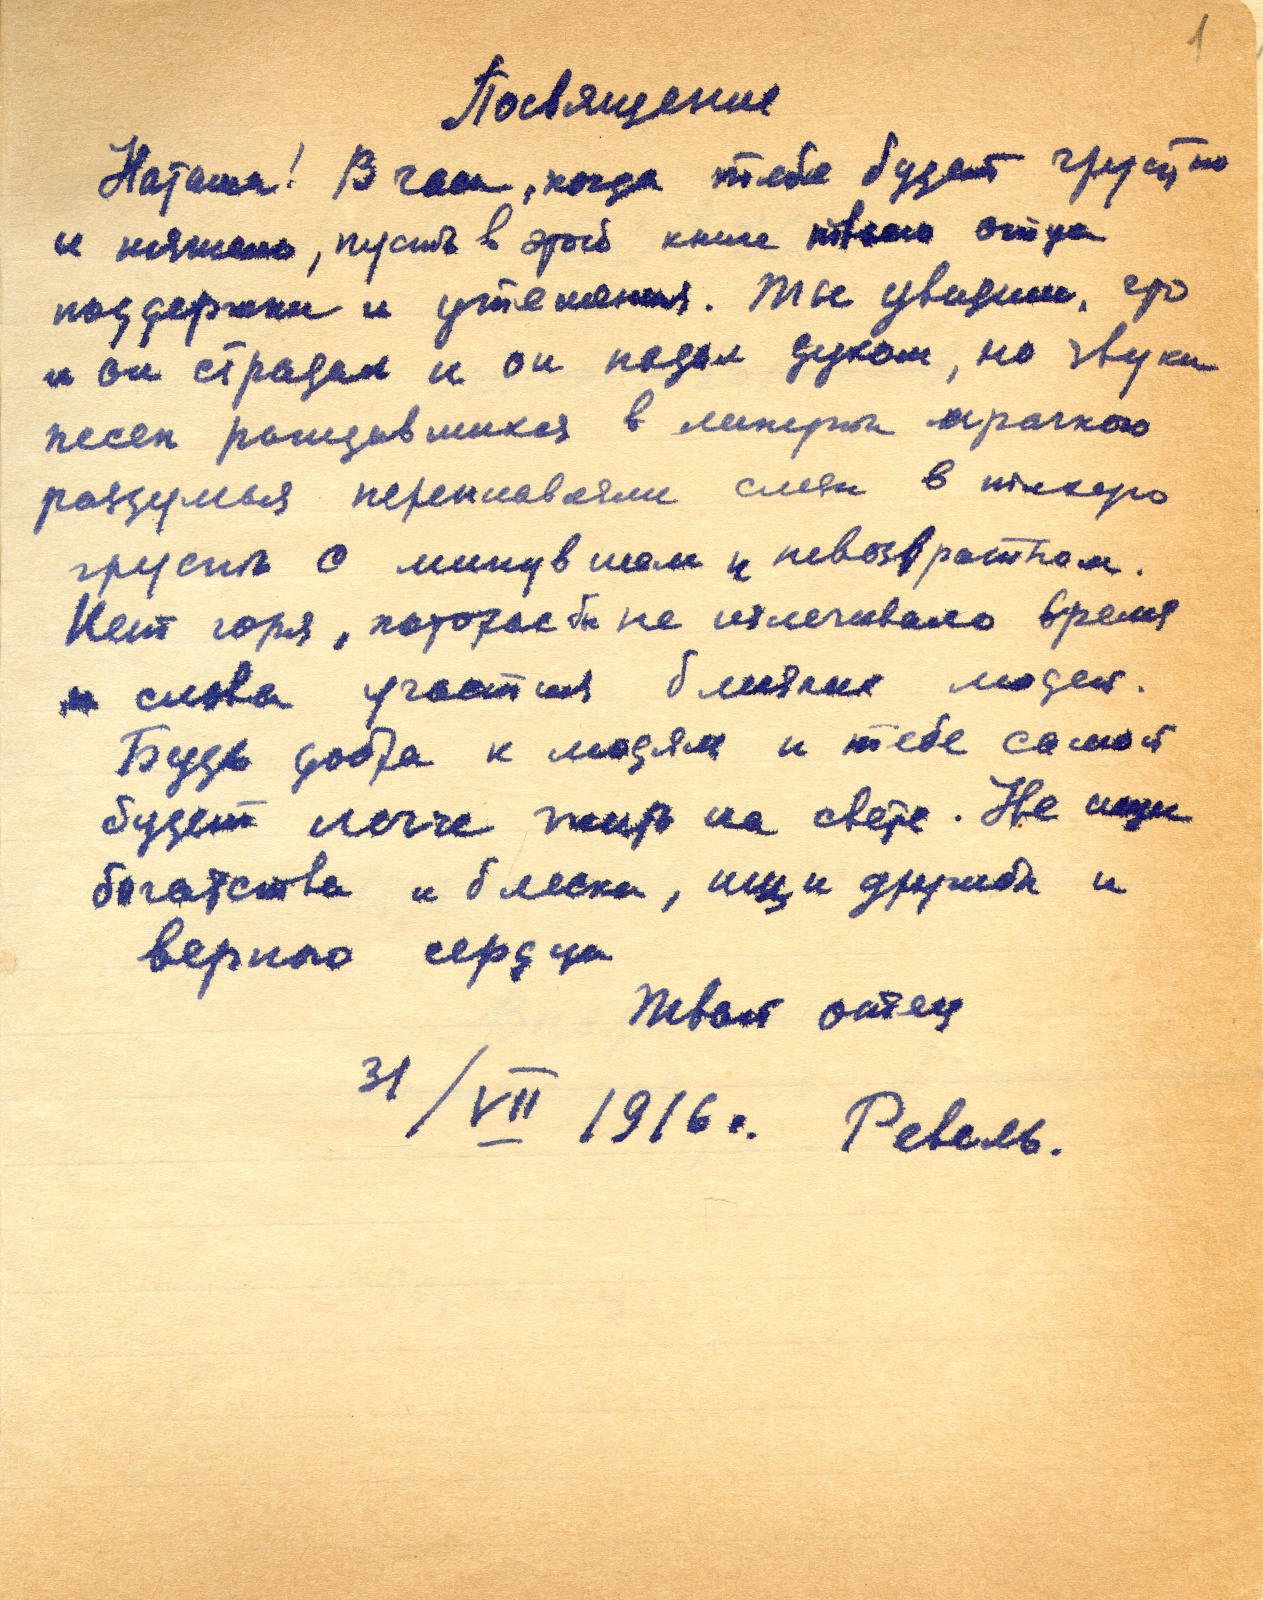 1
Посвящение
Наташа! В часы, когда тебе будет грустно
и тяжело, пусть в этой книге твоего отца
поддержки и утешения. Ты увидишь, что
и он страдал и он падал духом, но звуки
песен рождавшихся в минуты мрачного
раздумья переплавляли слезы в тихую
грусть о минувшем и невозвратном.
Нет горя, которое бы не излечивало время
и слова участия близких людей.
Будь добра к людям и тебе самой
будет легче жить на свете. Не ищи
богатства и блеска, ищи дружбы и
верного сердца
Твой отец
31/VII 1916 г. Ревель.